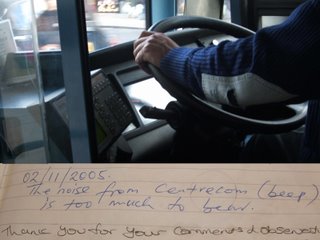 02/11/2005.
The noise from Centrecom (beep)
is too much to bear.
Thank you for your Comments & Observati